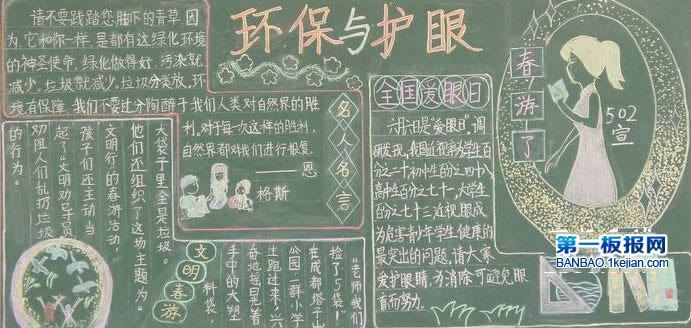 环保与护眼
请不要践踏您脚下的青草，因
为，它和你一样，是都有这绿化环境
的神圣使命，绿化做得好，污染就
减少。垃圾就减少。垃圾分类放，环
境有保障。我们不要过分陶醉于我们人类对自然界的胜
利，对于每一次这样的胜利，
自然界都对我们进行报复。
——恩
格斯
名人名言
全国爱眼日
六月六日是“爱眼日”，调
研发现，我国近视率为学生百
分之二十初中生百分之四十八
高中生百分之七十，大学生
百分之七十三近视眼成
为危害青少年学生健康的
最突出的问题，请大家
爱护眼睛，为消除可避免眼
盲而努力。
春游了
502
宣
文明春游
“老师我们
捡了5袋！”
在成都塔子山
公园，一群小学
生跑过来，兴
奋地摇晃着
手中的大塑
料袋，
大袋子里全是垃圾。
他们还组织了这场主题为“
文明行”的春游活动，
孩子们还主动当
起了“文明劝导员”
劝阻人们乱扔垃圾
的行为。
第一板报网
BANBAO.1kejian.com